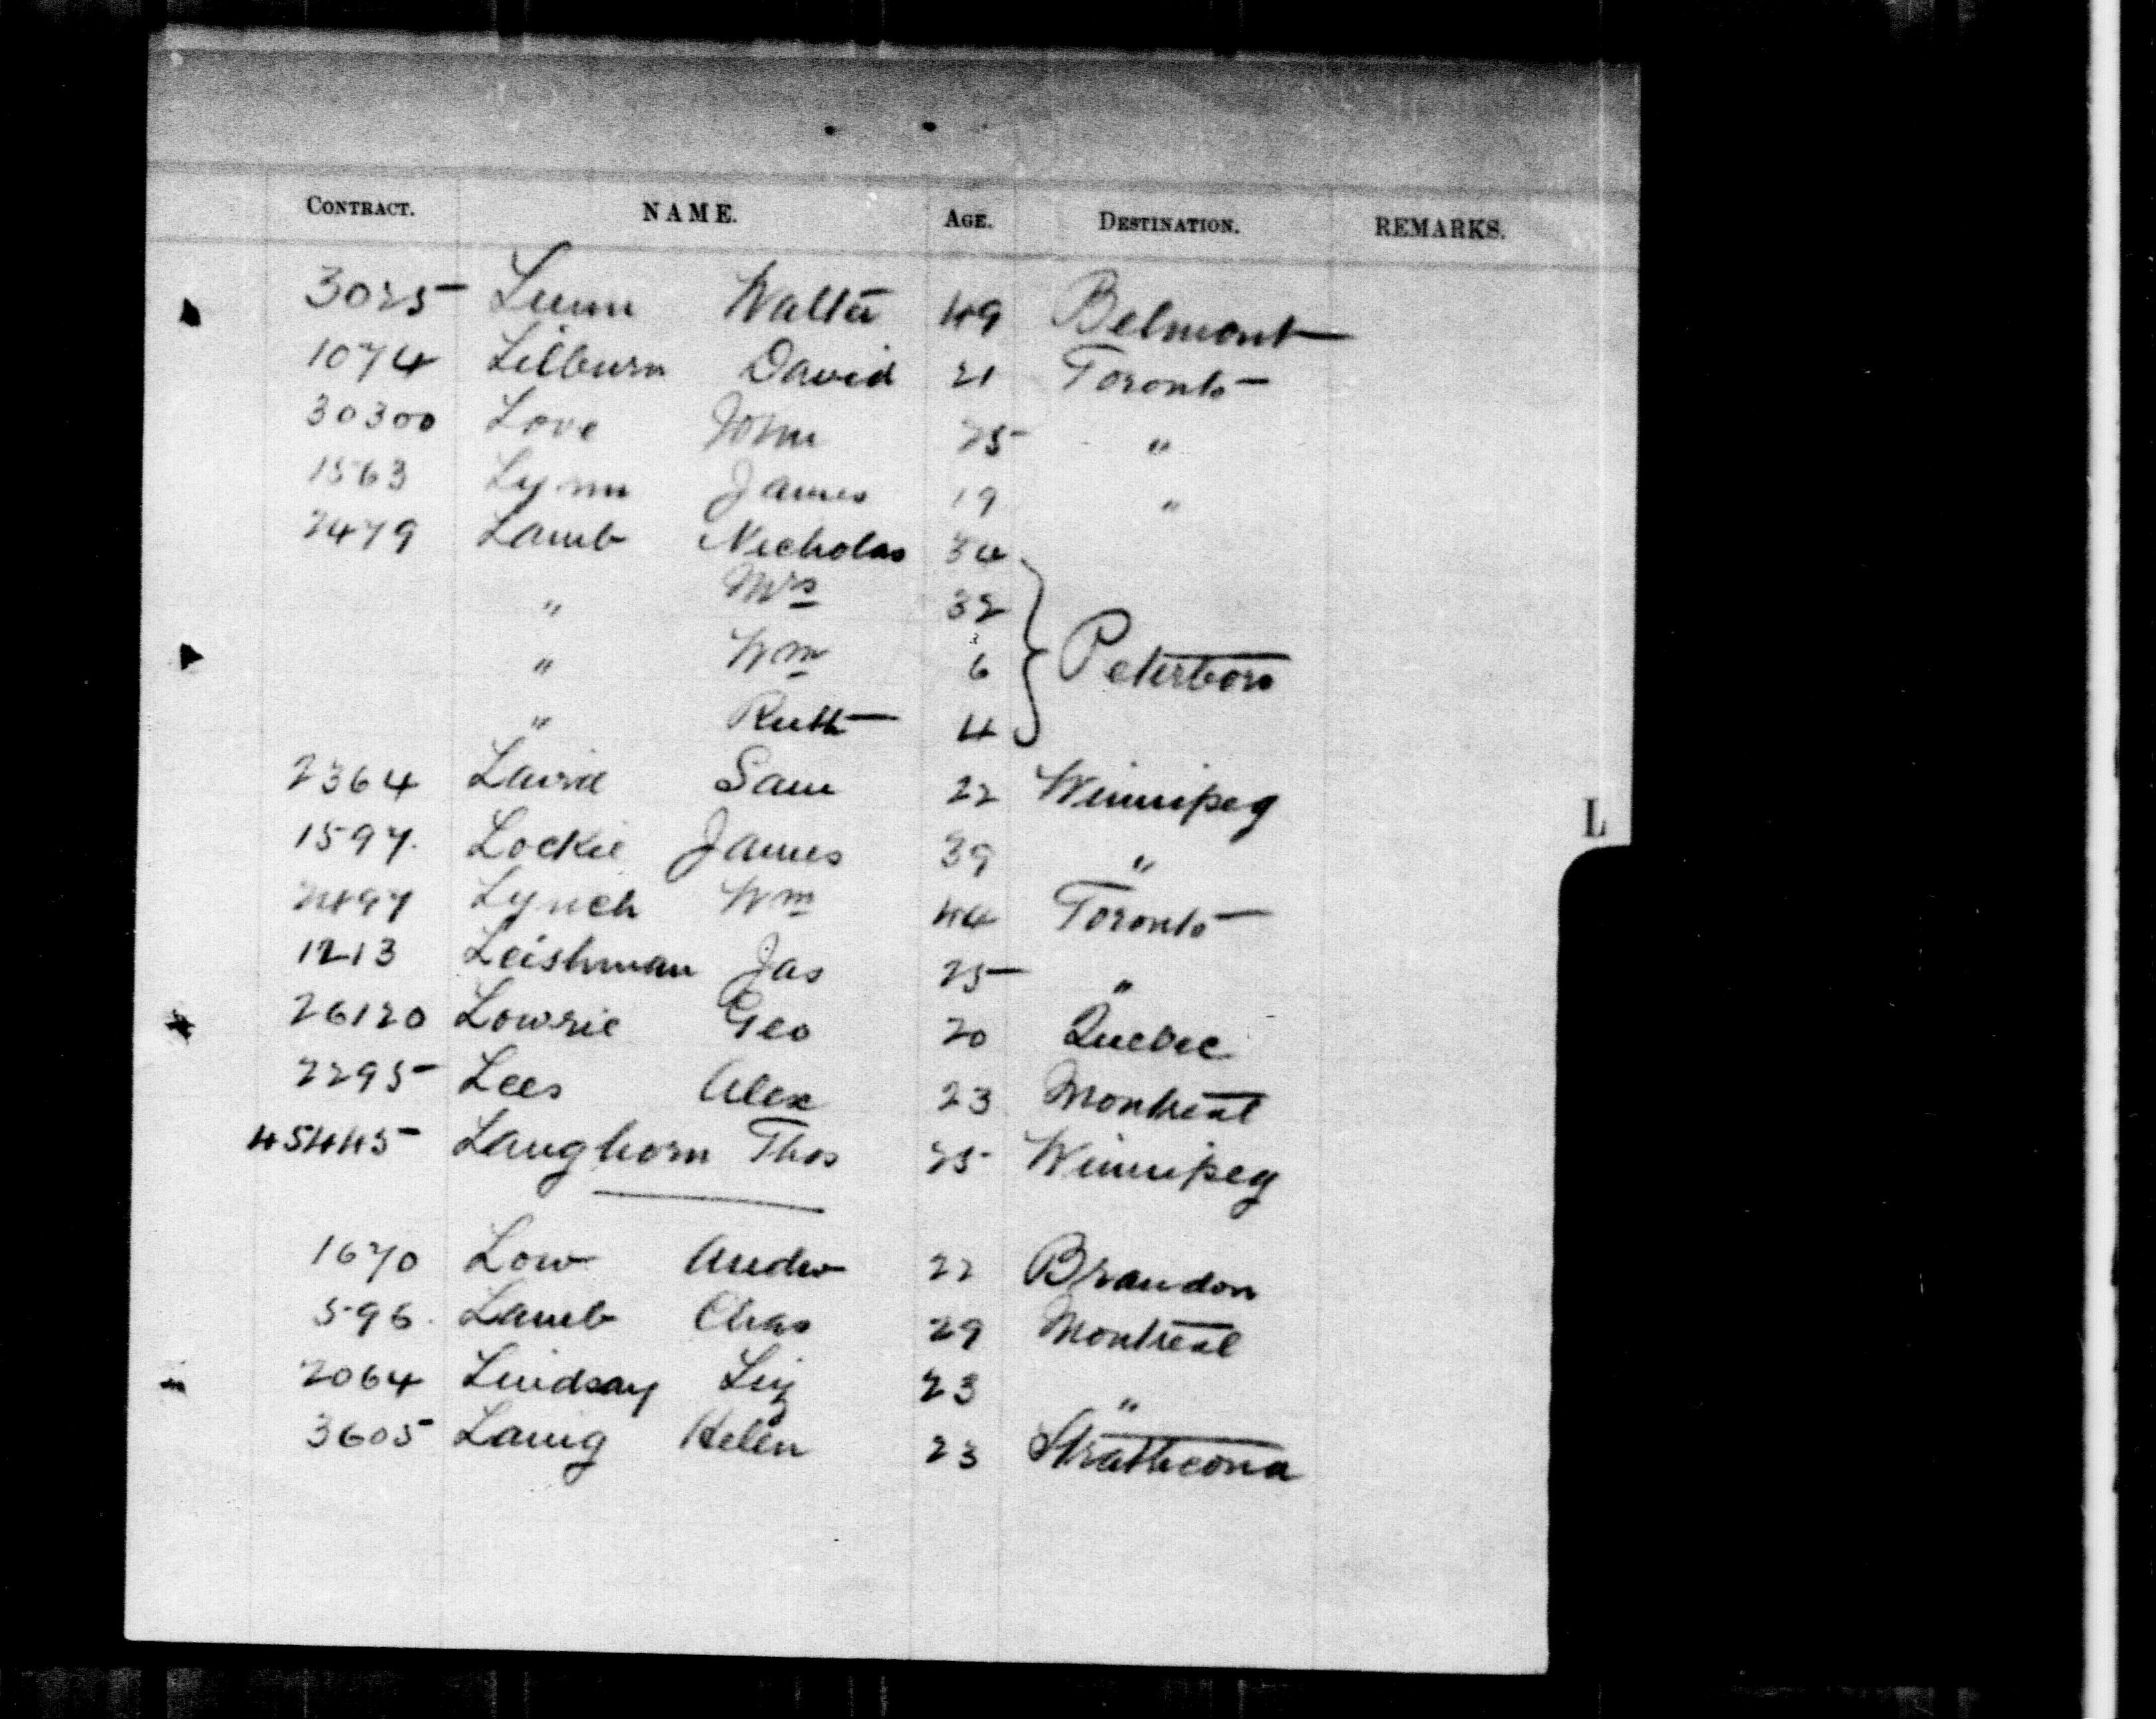 CONTRACT. NAME. AGE. DESTINATION. REMARKS.
3025 Lunn Walter 49 Belmont
1074 Lilburn David 21 Toronto
30300 Love John 25 "
1563 Lynn James 19 "
2479 Lamb Nicholas 34
" Mrs 32
" Wm 6 Peterboro
" Ruth 4
2364 Laird Sam 22 Winnipeg
L
1597. Lockie James 39 "
2497 Lynch Wm 44 Toronto
1213 Leishman Jas 25 "
26120 Lowrie Geo 20 Quebec
2295 Lees Alex 23 Montreal
45445 Langhorn Thos 25 Winnipeg
1670 Low Andw 22 Brandon
596. Lamb Chas 29 Montreal
2064 Lindsay Liz 23 "
3605 Laing Helen 23 Strathcona